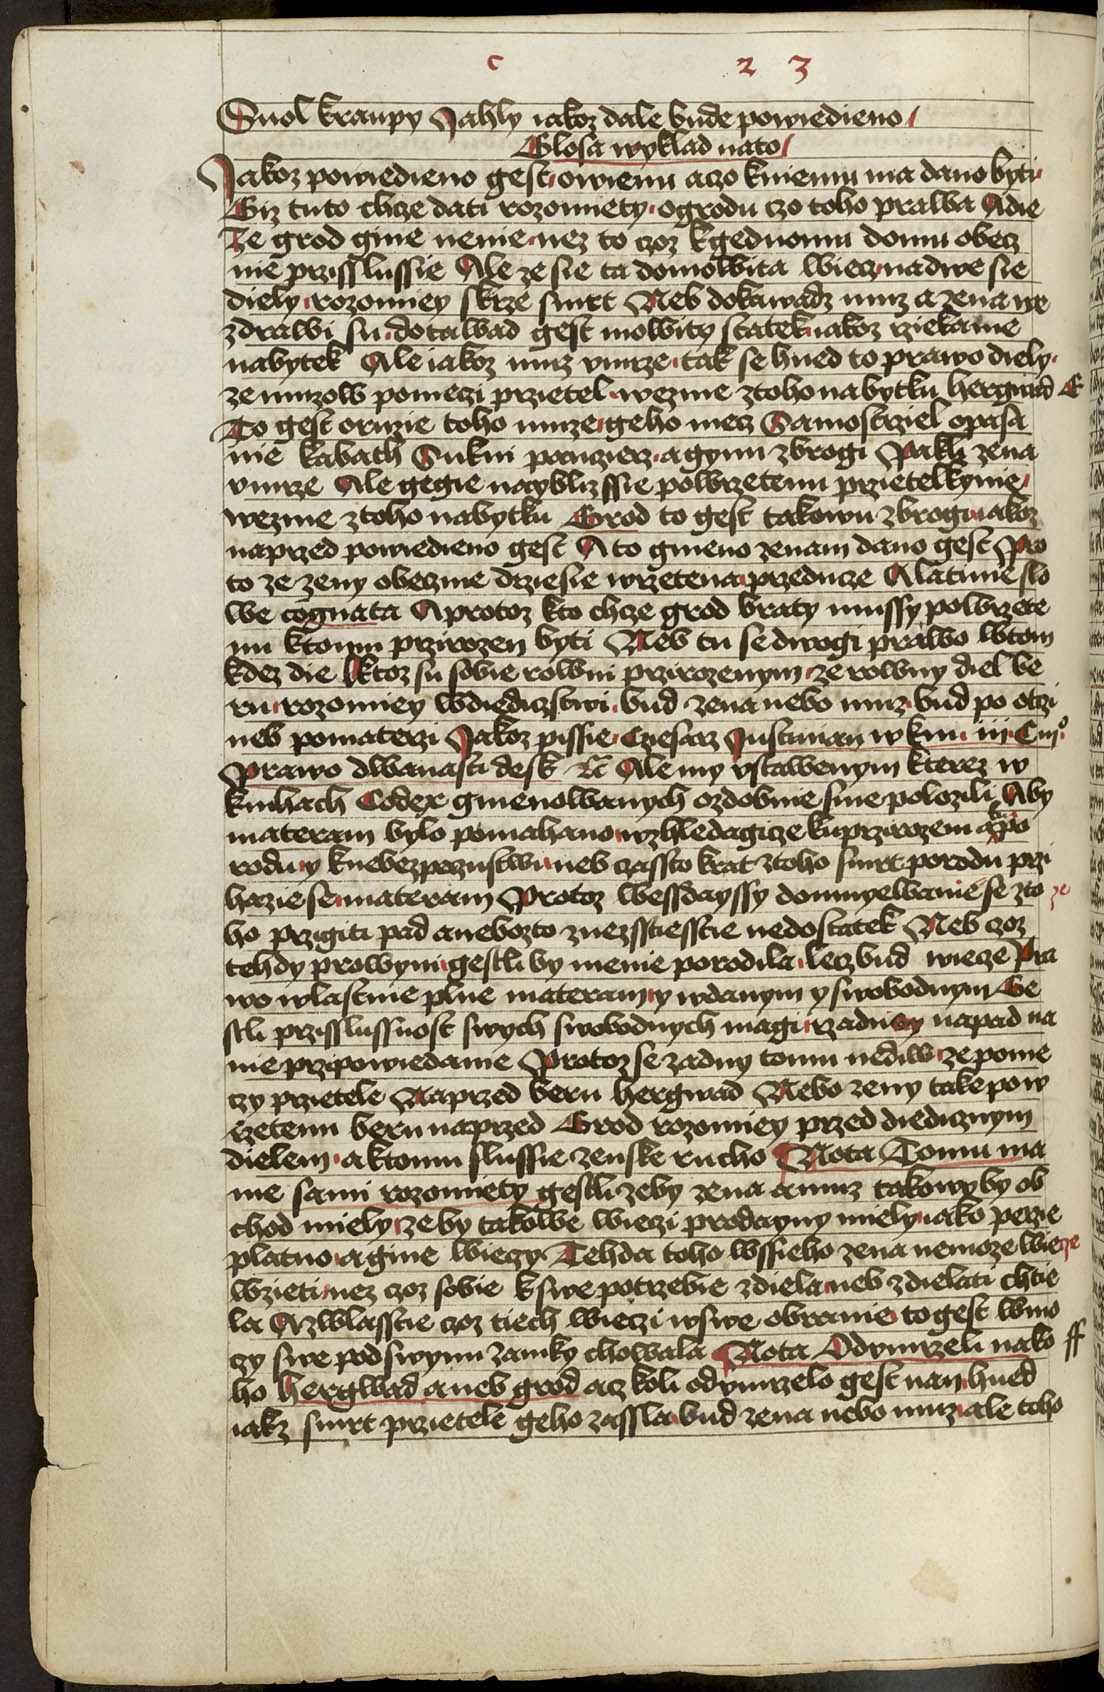 c 2 3
Suol kraupy Jahly iakoz dale bude powiedieno
Glosa wyklad nato
Jakoz powiedieno gest owienu aczo kniemu ma dano byti
Giz tuto chcze dati rozomiety ogrodu czo toho prawa Adie
Ze grod gine nenie nez to czoz kgednomu domu obecz
nie przisslussie Ale ze sie ta domowita wiecz nadwe sie
diely rozomiey skrze smrt Neb dokawadz muz a zena we
zdrawi su dotawad gest mowity statek iakoz rziekame
nabytek Ale iakoz muz vmrze tak se hned to prawo diely
ze muzow pomeczi przietel wezme ztoho nabytku hergwad E
To gest oruzie toho muze geho mecz Samostrziel opasa
nie kabath Sukni panczierz agynu zbrogi Pakli zena
vmrze Ale gegie nayblizssie powrzetenu przietelkynie
wezme ztoho nabytku Grod to gest takowu zbrogi iakoz
naprzed powiedieno gest A to gmeno zenam dano gest Pro
to ze zeny obeczme drziesie wrzetena przeducze Alatinie slo
we cognata A protoz kto chcze grod braty mussy powrzete
nu ktomu przirozen byti Neb tu se dwogi prawo wtom
kdez die Ktoz su sobie rowni przirozenym ze rowny diel be
ru rozomiey wdiediczstwi bud zena nebo muz bud po otczi
neb pomaterzi Jakoz pissie Cziesarz Justinian w knu iii C iii°
Prawo dwanasti desk &c Ale my vstawenym kterez w
knihach Codex gmenowanych ozdobnie sme polozili Aby
materam bylo pomahano wzhledagicze kuprzirozeni a kpo
rodu y knebezpeczustwi neb czassto krat ztoho smrt porodu przi
hazie se materam Protoz wessdayssy domnyewanie se zto ze
ho przigiti pad anebozto znezsstiesstie nedostatek Neb czoz
tehdy prowyni gestli by menie porodila lecz bud wiecze Pra
wo wlastnie plne materam y wdanym y swobodnym Ge
stli przisslussnost swych swobodnych magi rzadny napad na
nie przipowiedame Protoz se zadny tomu nediw ze pome
czy przietele Naprzed beru hergwad Nebo zeny take pow
rzetenu beru naprzed Grod rozomiey przed diedicznym
dielem aktomu slussie zenske rucho Nota Tomu ma
me sami rozomiety gestli zeby zena amuz takowy by ob
chod miely ze by takowe wieczi prodayny miely iako perzie
platno agine wieczy Tehda toho wssieho zena nemoze wiecze
wzieti nez czoz sobie kswe potrzebie zdiela neb zdielati chtie
la Azwlasstie czoz tiech wieczi wswe obranie to gest wmo
czy swe podswymi zamky chowala Nota Odumrzeli nako ff
ho hergwad aneb grod acz koli odumrzelo gest nan hned
iakz smrt przietele geho zassla bud zena nebo muz ale toho